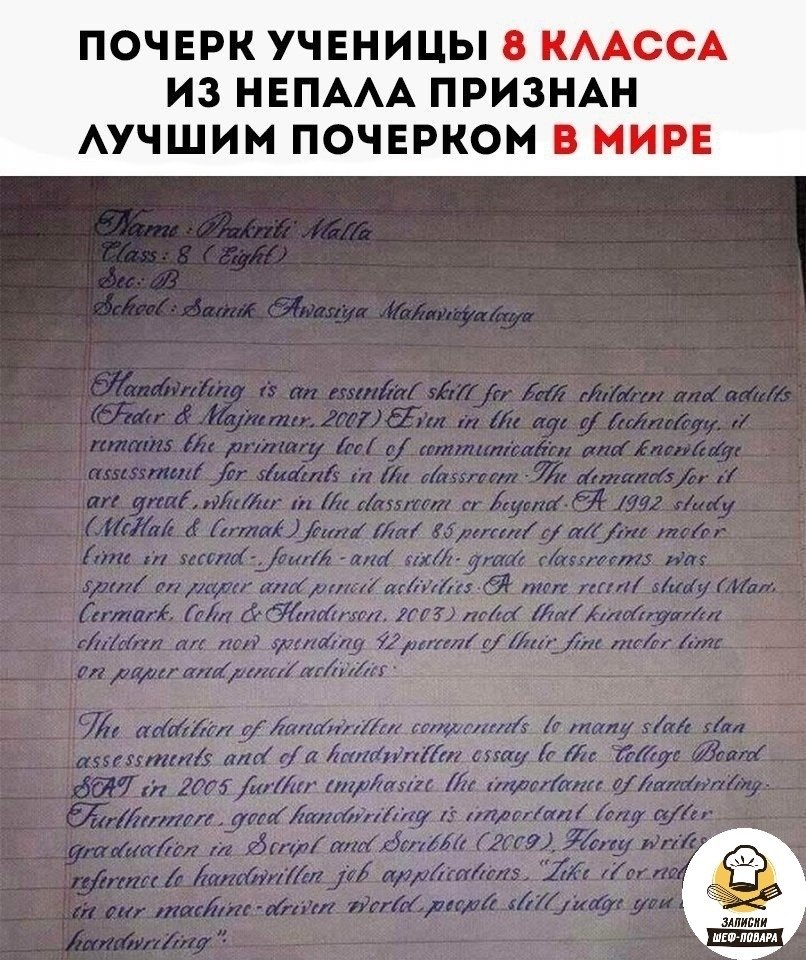 ПОЧЕРК УЧЕНИЦЫ 8 КЛАССА
ИЗ НЕПАЛА ПРИЗНАН
ЛУЧШИМ ПОЧЕРКОМ В МИРЕ
Name : Prakriti Malla
Class : 8 ( Eight )
Sec : B
School : Sainik Awasiya Mahavidyalaya
Handwriting is an essential skill for both children and adults
(Feder & Majnemer, 2007) Even in the age of technology, it
remains the primary tool of communication and knowledge
assessment for students in the classroom. The demands for it
are great, whether in the classroom or beyond. A 1992 study
(McHale & Cermak) found that 85 percent of all fine motor
time in second-, fourth - and sixth- grade classrooms was
spent on paper and pencil activities. A more recent study (Marr,
Cermark, Cohn & Henderson, 2003) noted that kindergarten
children are now spending 42 percent of their fine motor time
on paper and pencil activities.
The addition of handwritten components to many state stan
assessments and of a handwritten essay to the College Board
SAT in 2005 further emphasize the importance of handwriting.
Furthermore, good handwriting is important long after
graduation in Script and Scribble (2009), Florey write
reference to handwritten job applications, "Like it or not
in our machine-driven world, people still judge you
handwriting".
ЗАПИСКИ
ШЕФ-ПОВАРА